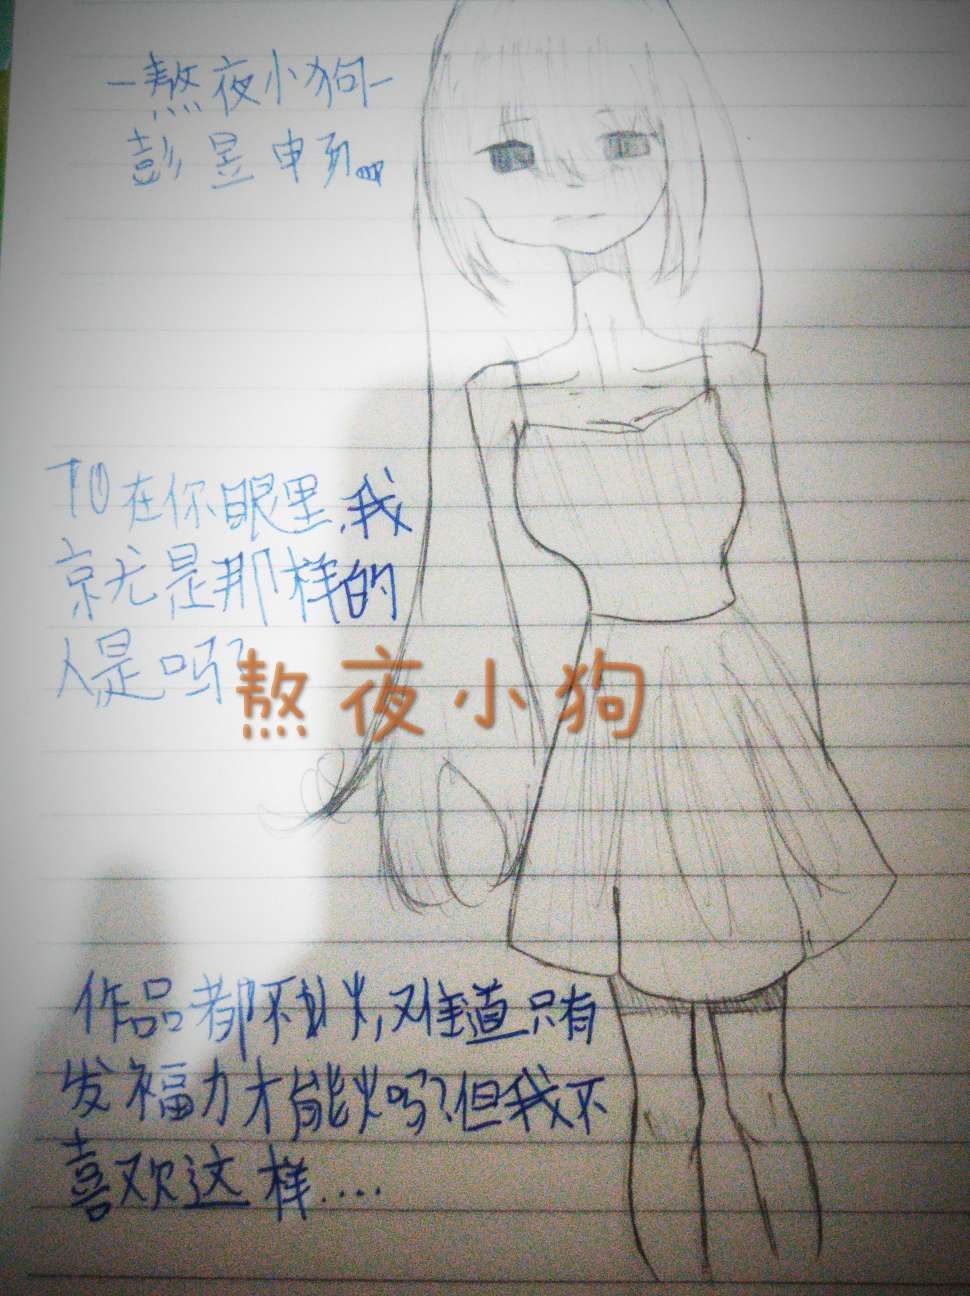 -熬夜小狗-
彭昱申
TO在你眼里,我
就尤是那样的
人是吗?
熬夜小狗
作品都不火,难道只有
发福力才能火吗?但我不
喜欢这样....